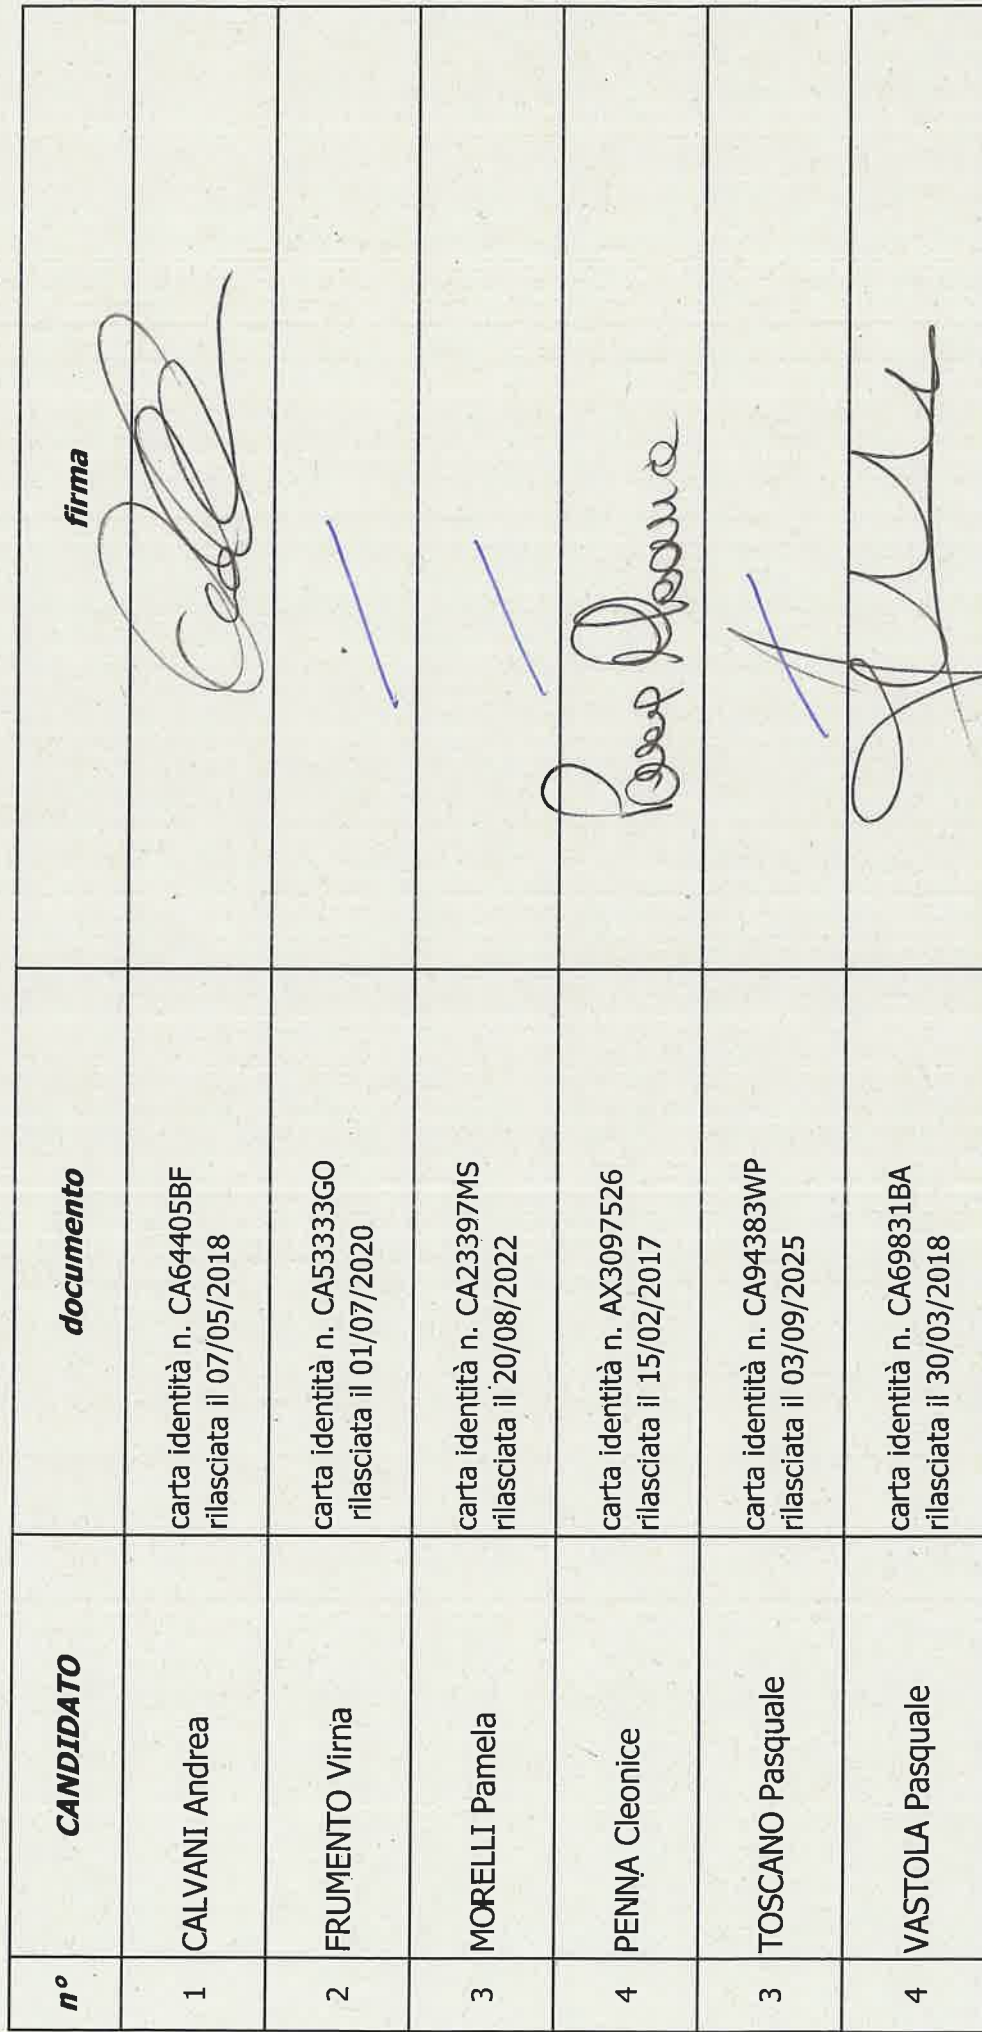 n° CANDIDATO documento firma
1 CALVANI Andrea carta identità n. CA64405BF
rilasciata il 07/05/2018
2 FRUMENTO Virna carta identità n. CA53333GO
rilasciata il 01/07/2020
3 MORELLI Pamela carta identità n. CA23397MS
rilasciata il 20/08/2022
4 PENNA Cleonice carta identità n. AX3097526
rilasciata il 15/02/2017
3 TOSCANO Pasquale carta identità n. CA94383WP
rilasciata il 03/09/2025
4 VASTOLA Pasquale carta identità n. CA69831BA
rilasciata il 30/03/2018